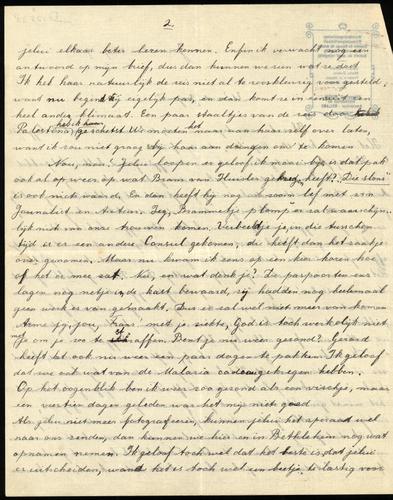 2.
jelui elkaar beter leren kennen. Enfin ik verwacht nog een
antwoord op mijn brief, dus dan kunnen we zien wat ze doet.
Ik heb haar natuurlijk de reis niet al te rooskleurig voorgesteld,
want nu begint zij eigelijk pas, en dan komt ze in ineens een
heel andig klimaat. Een paar staaltjes van de reis
heb ik haar geschetst. We moeten het maar aan haar zelf over laten,
want ik zou niet graag bij haar aan dringen om te komen
Nou, nou! Jelui loopen er geloof ik maar bij is dat pak
ook al op weer op wat Bram van gekregen heeft? Die slons
is ook niet waard. En dan heeft hij nog zoo'n lef met een
Journalist en Auteur. Zeg, Brammetje plomp er zal waarschijn-
lijk niets van onze trouwen komen. Verbeeld je, in die tusschen
tijd is er een andere Consul gekomen, die heeft dan het zaakje
over genomen. Maar nu kwam ik eens op een keer hooren hoe
of het er mee zat. hier, en wat denk je? De paspoorten
lagen nog netjes in de kast bewaard, zij hadden nog heelemaal
geen werk er van gemaakt. Dus er zal wel niet meer van komen
Arme jij, jou, met je ziekte, God is toch werkelijk niet
Ja om je zoo te straffen. Bent je nu weer gezond? Gerard
heeft het ook nu weer een paar dagen te pakken. Ik geloof
dat we ook wat van de Malaria cadeau gekregen hebben.
Op het oogenblik ben ik weer zoo gezond als een vischje, maar
een viertien dagen geleden was het mij niet goed
Als jelui niet meer fotografeeren, kunnen jelui het aparaat wel
naar ons zenden, dan kunnen we hier en in Bethlehem nog wat
opnamen nemen. Ik geloof toch wel dat het beste is, dat jelui
er uitscheiden, want het is toch wel een beetje te lastig voor